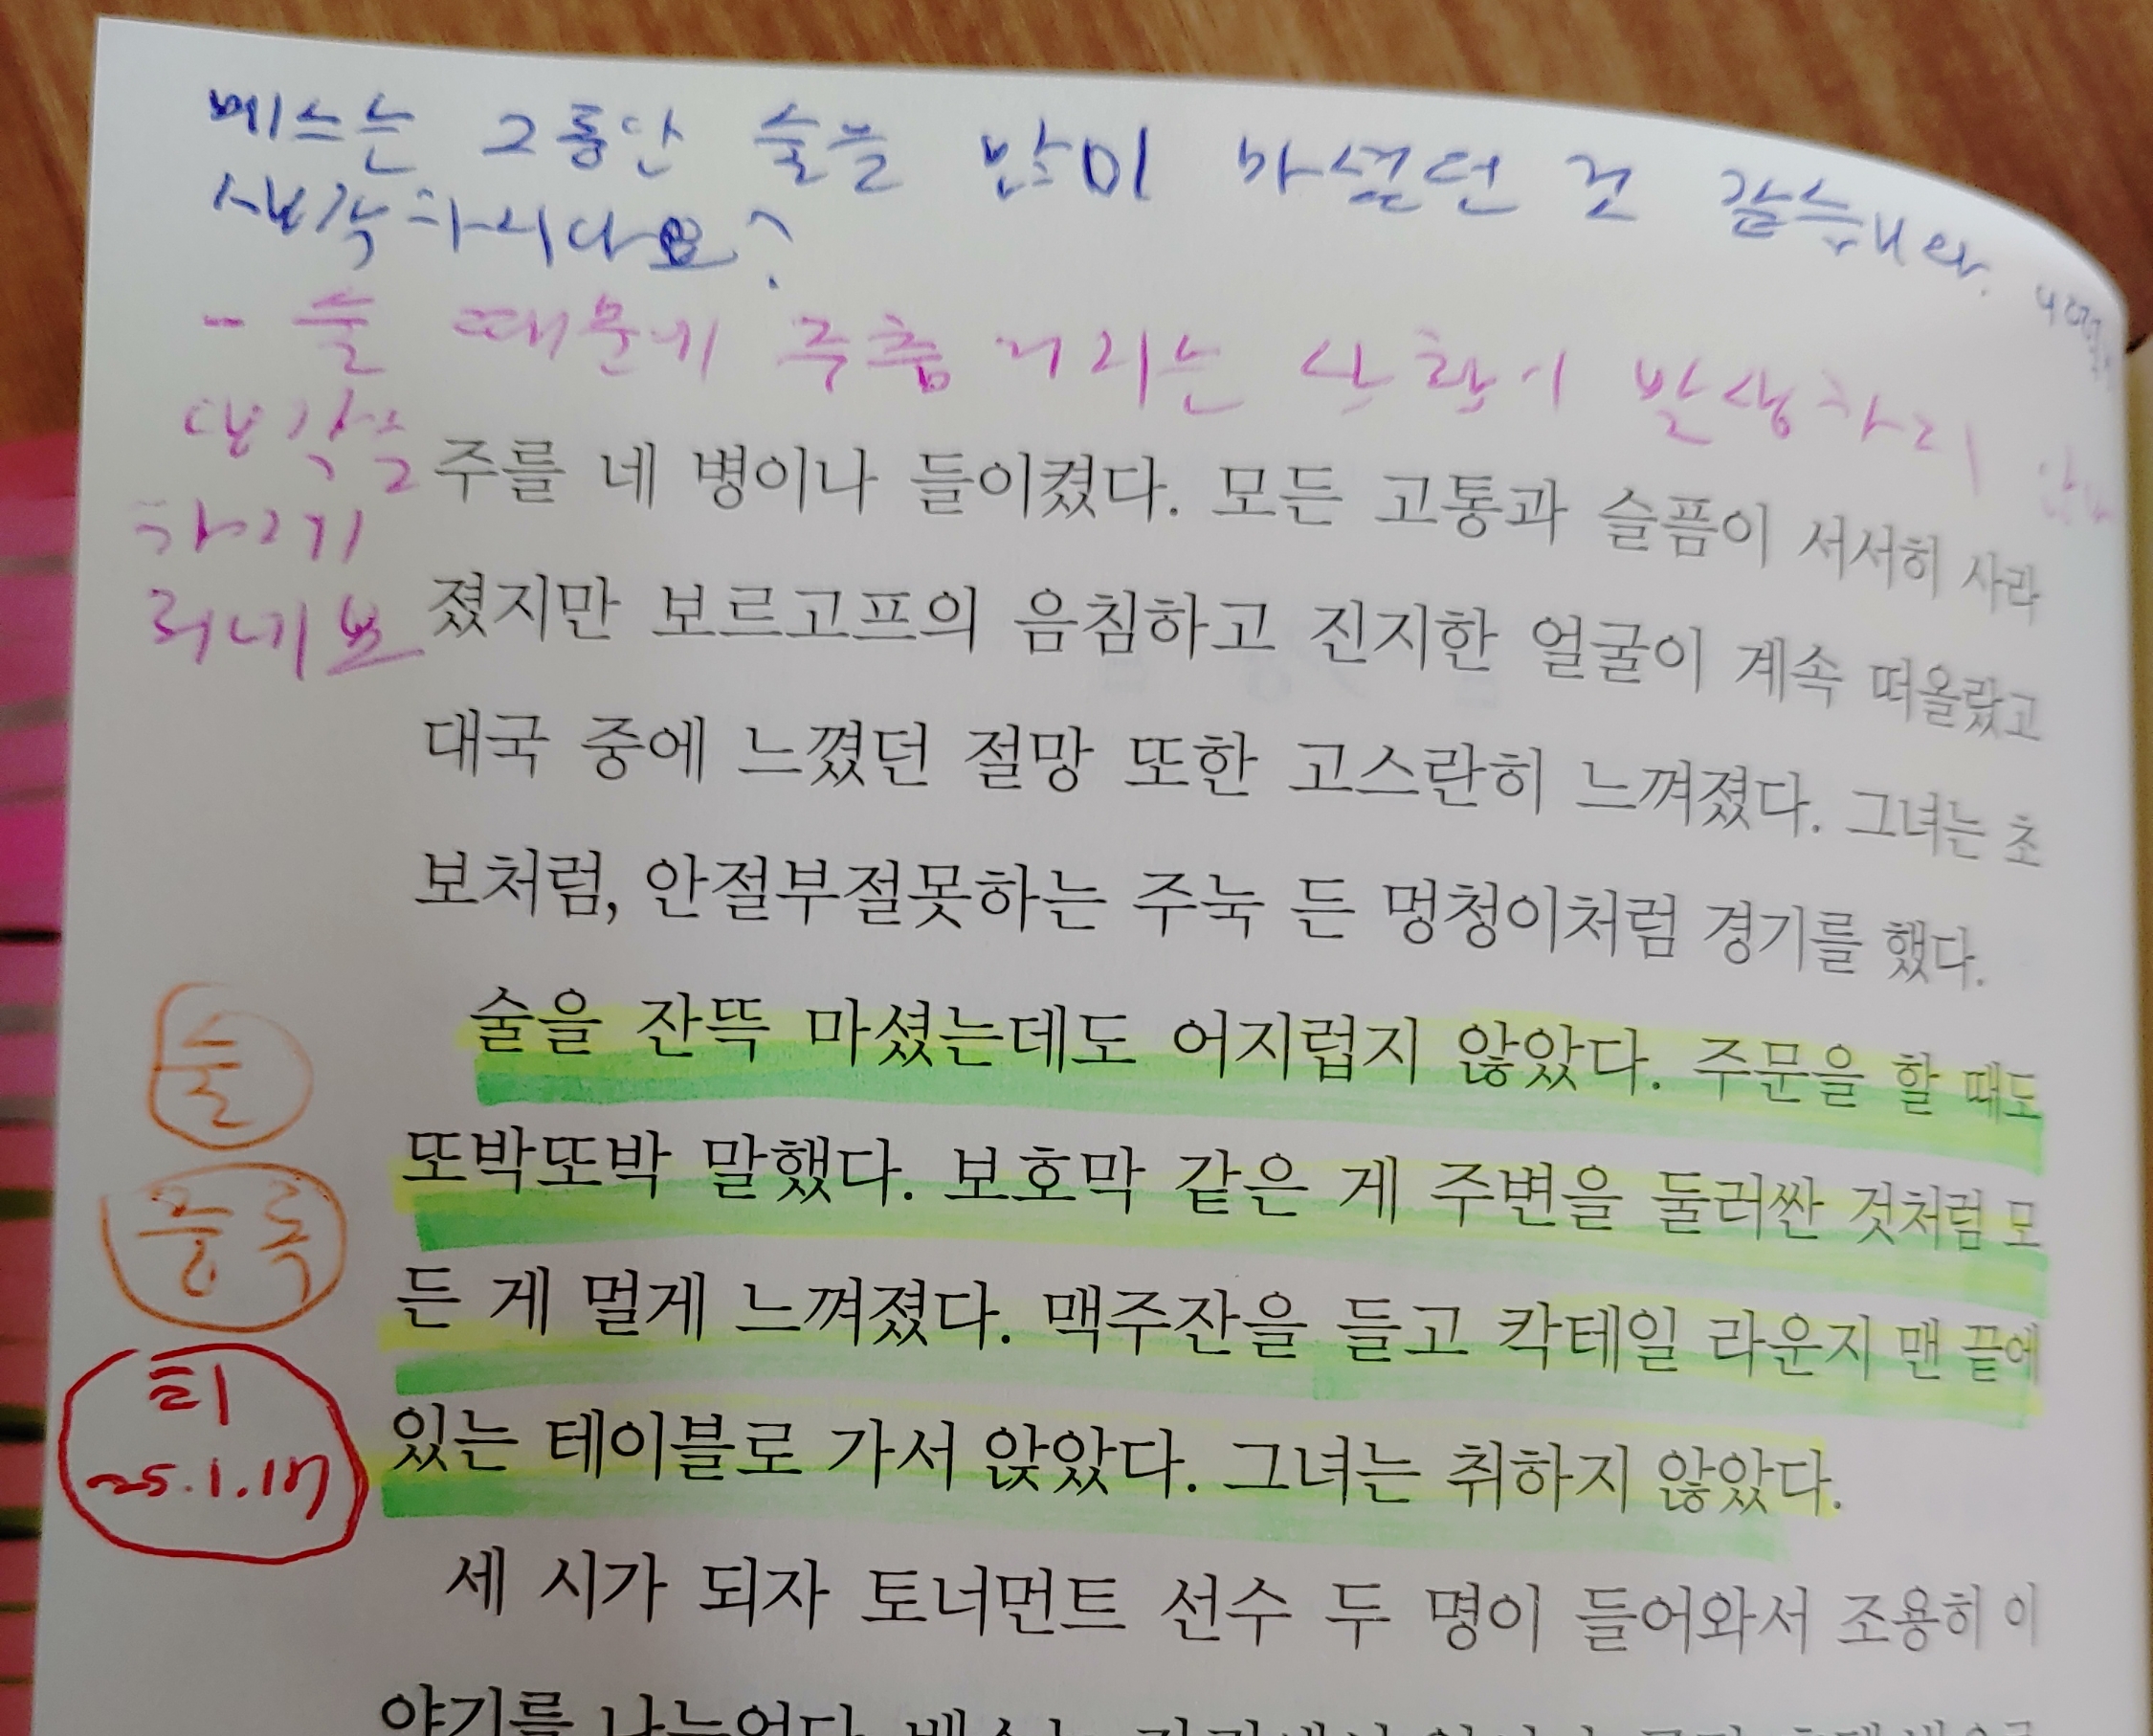 베스는 그동안 술을 많이 마셨던 것 같습니다.
생각하시나요?
- 술 때문에 주춤거리는 상황이 발생하리
생각을
하기
려네요
주를 네 병이나 들이켰다. 모든 고통과 슬픔이 서서히 사라
졌지만 보르고프의 음침하고 진지한 얼굴이 계속 떠올랐고
대국 중에 느꼈던 절망 또한 고스란히 느껴졌다. 그녀는 초
보처럼, 안절부절못하는 주눅 든 멍청이처럼 경기를 했다.
술을 잔뜩 마셨는데도 어지럽지 않았다. 주문을 할 때도
또박또박 말했다. 보호막 같은 게 주변을 둘러싼 것처럼 모
든 게 멀게 느껴졌다. 맥주잔을 들고 칵테일 라운지 맨 끝에
있는 테이블로 가서 앉았다. 그녀는 취하지 않았다.
술
중독
티
25.1.17
세 시가 되자 토너먼트 선수 두 명이 들어와서 조용히 이
야기를 나누었다.